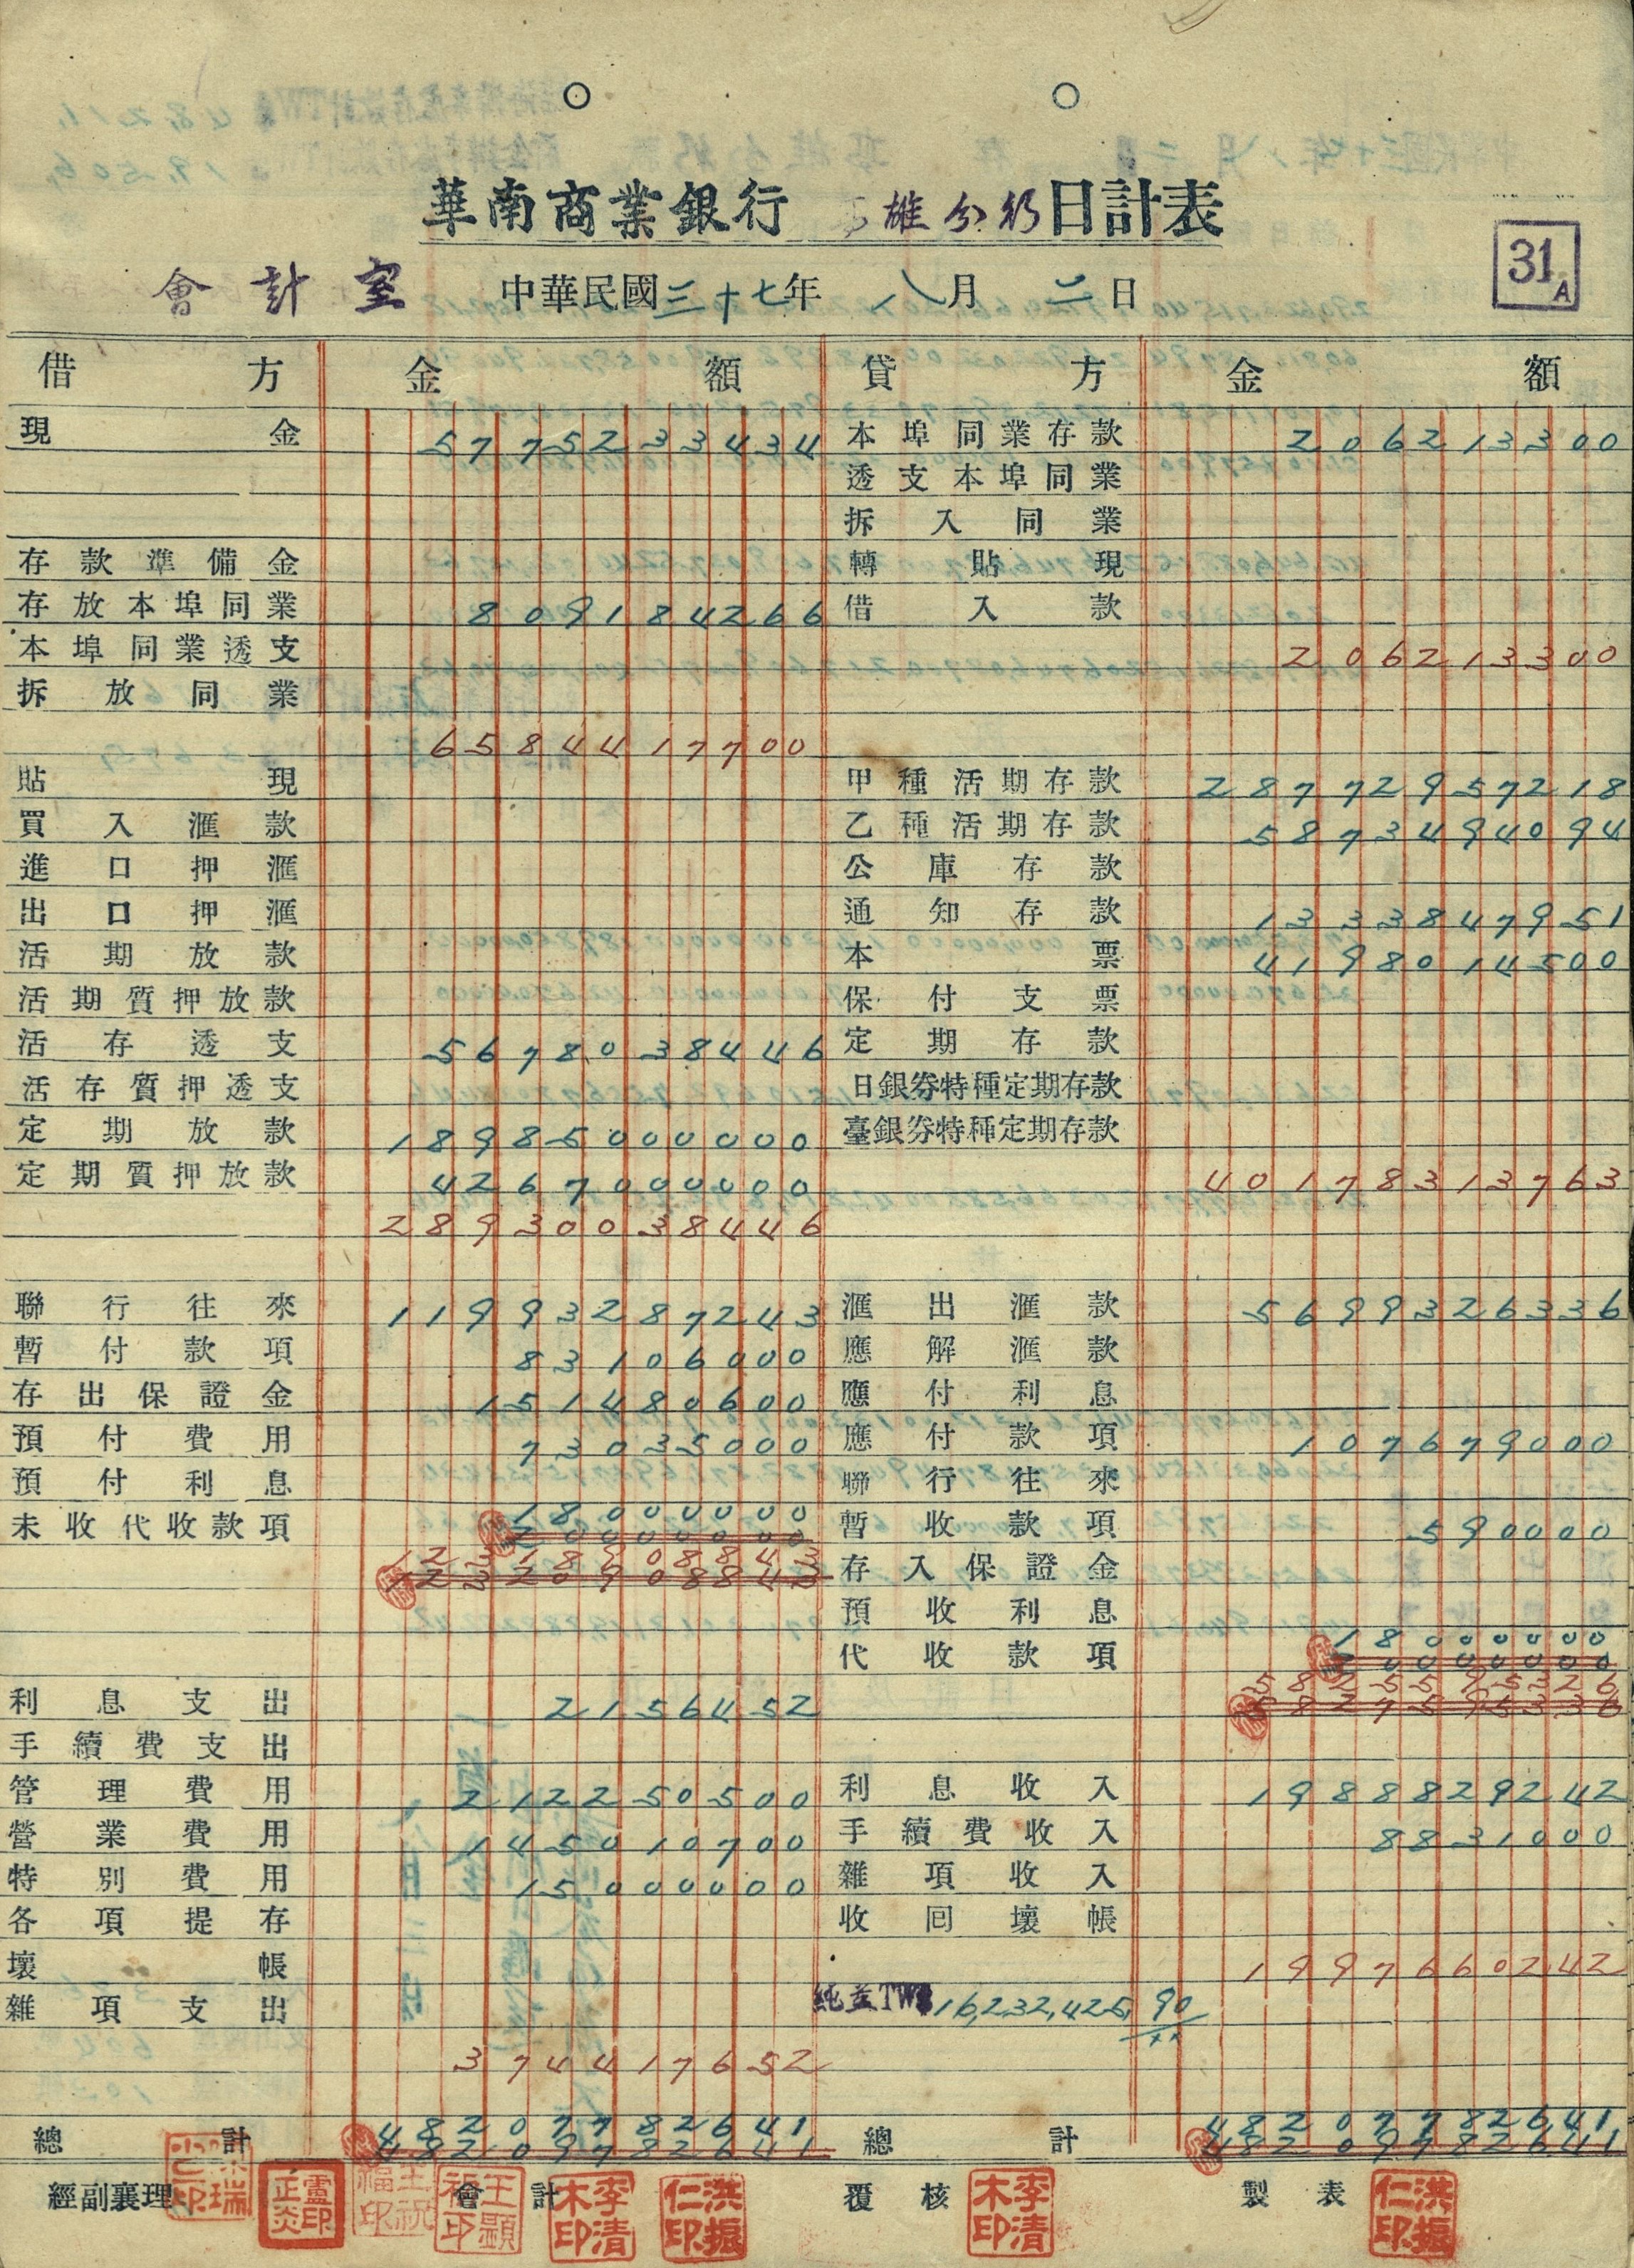 華南商業銀行 雄分行日計表
31A
會計室 中華民國三十七年八月二日
借方 金額 貸方 金額
現金 5775233434 本埠同業存款 206213300
透支本埠同業
拆入同業
存款準備金 轉貼現
存放本埠同業 809184266 借入款
本埠同業透支 206213300
拆放同業
6584417700
貼現 甲種活期存款 28772957218
買入滙款 乙種活期存款 5873494094
進口押滙 公庫存款
出口押滙 通知存款 1333847951
活期放款 本票 4198014500
活期質押放款 保付支票
活存透支 5678038446 定期存款
活存質押透支 日銀劵特種定期存款
定期放款 18985000000 臺銀劵特種定期存款
定期質押放款 4267000000 40178313763
28930038446
聯行往來 11993287243 滙出滙款 5699326336
暫付款項 83106000 應解滙款
存出保證金 151480600 應付利息
預付費用 73035000 應付款項 107679000
預付利息 聯行往來
18000000
未收代收款項 20000000 暫收款項 590000
12318908843
12320908843 存入保證金
預收利息
18000000
代收款項 20000000
5825595336
利息支出 2156452 5827595336
手續費支出
管理費用 212250500 利息收入 1988829242
營業費用 145010700 手續費收入 8831000
特別費用 15000000 雜項收入
各項提存 收囘壞帳
壞帳 1997660242
雜項支出 純益TW$16,232,425.90
374417652
48207782641 48207782641
總計 48209782641 總計 48209782641
經副襄理 會計 覆核 製表
盧正炎印 王祝福印 王顯福印 李清木印 洪振仁印 李清木印 洪振仁印